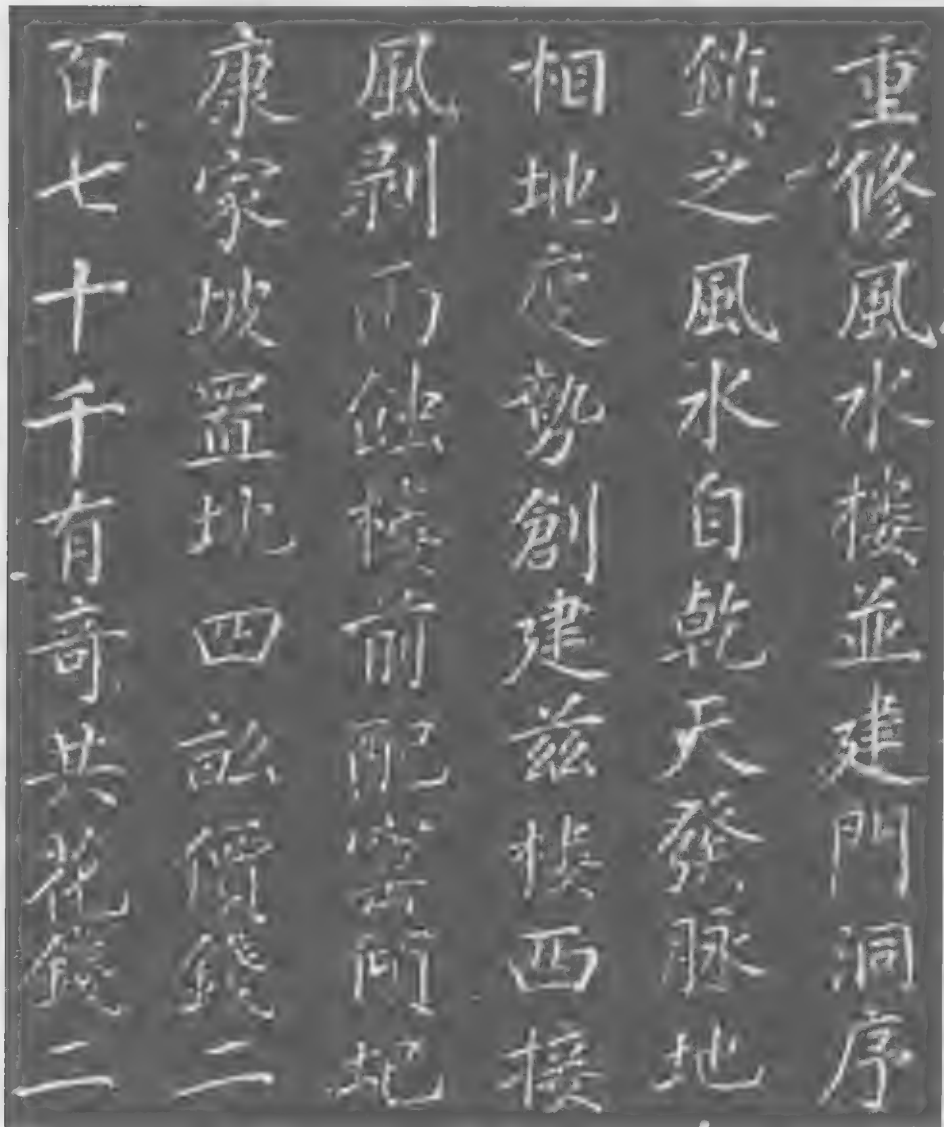 重修風水楼並建門洞序
鎮之風水自乾天發脉地
相地定勢創建兹楼西接
風剥雨蝕楼前配窑門圮
康家坡置地四畝價錢二
百七十千有奇共花錢二